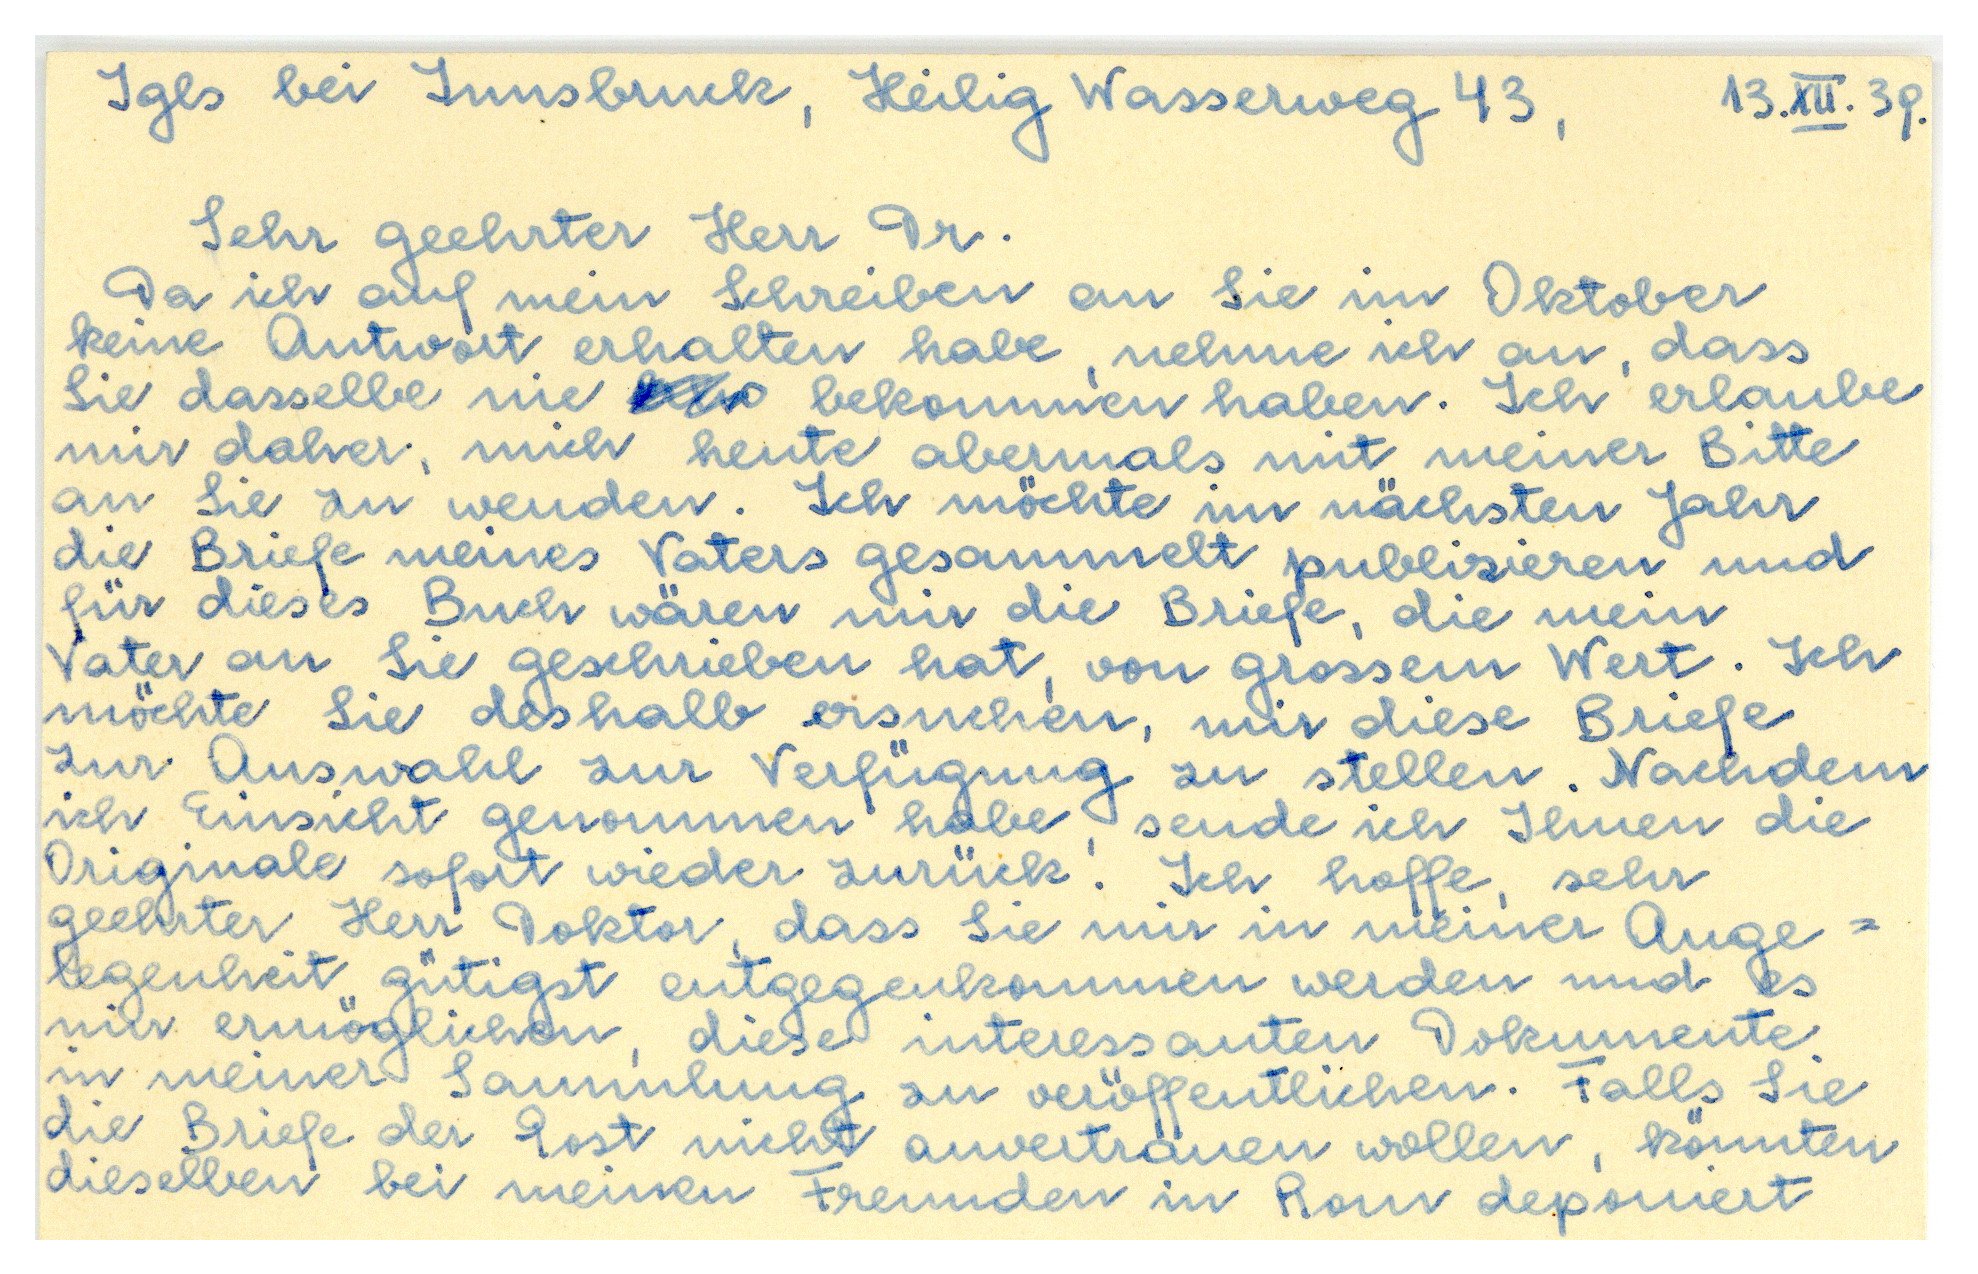 Igls bei Innsbruck, Heilig Wasserweg 43, 13.XII.39.
Sehr geehrter Herr Dr.
Da ich auf mein Schreiben an Sie im Oktober
keine Antwort erhalten habe, nehme ich an, dass
Sie dasselbe nie bekommen haben. Ich erlaube
mir daher, mich heute abermals mit meiner Bitte
an Sie zu wenden. Ich möchte im nächsten Jahr
die Briefe meines Vaters gesammelt publizieren und
für dieses Buch wären mir die Briefe, die mein
Vater an Sie geschrieben hat, von grossem Wert. Ich
möchte Sie deshalb ersuchen, mir diese Briefe
zur Auswahl zur Verfügung zu stellen. Nachdem
ich Einsicht genommen habe, sende ich Ihnen die
Originale sofort wieder zurück. Ich hoffe, sehr
geehrter Herr Doktor, dass Sie mir in meiner Ange=
legenheit gütigst entgegenkommen werden und es
mir ermöglichen, diese interessanten Dokumente
in meiner Sammlung zu veröffentlichen. Falls Sie
die Briefe der Post nicht anvertrauen wollen, könnten
dieselben bei meinen Freunden in Rom deponiert